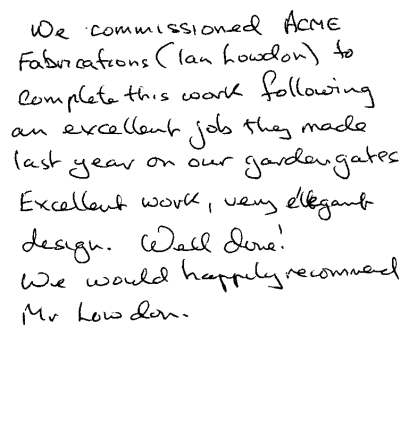 We commissioned ACME
Fabrications (Ian Lowdon) to
complete this work following
an excellent job they made
last year on our garden gates
Excellent work, very elegant
design. Well done!
We would happily recommend
Mr Lowdon.